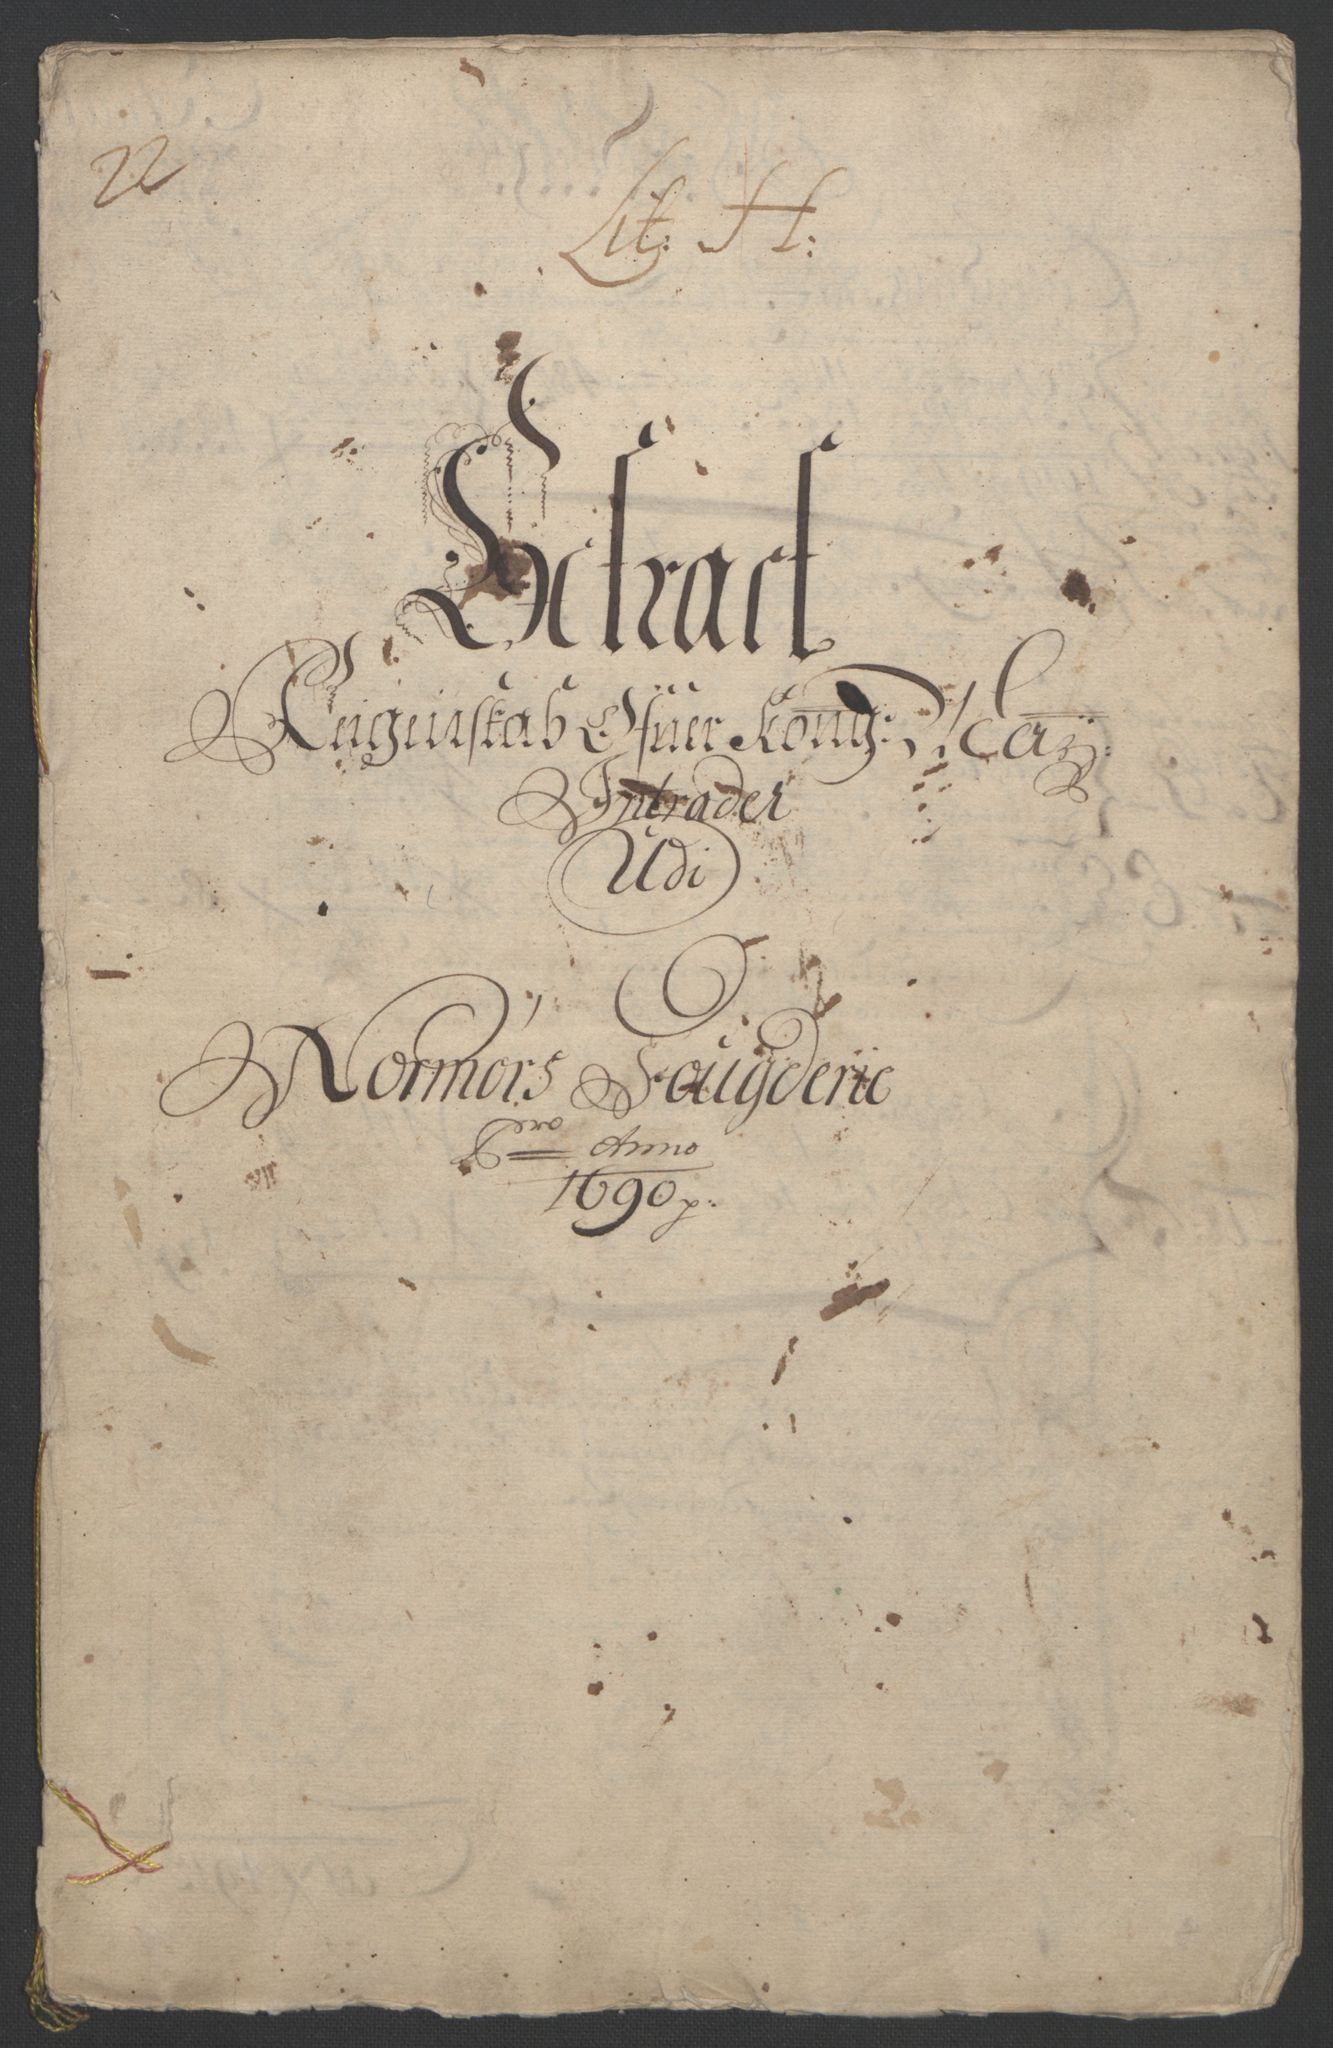 22
Lit: H:
Extract
Regenskab Ofuer Kong: Maÿ:
Intrader
Udi
Normørs Fougderie
Pro Anno
1690 p: